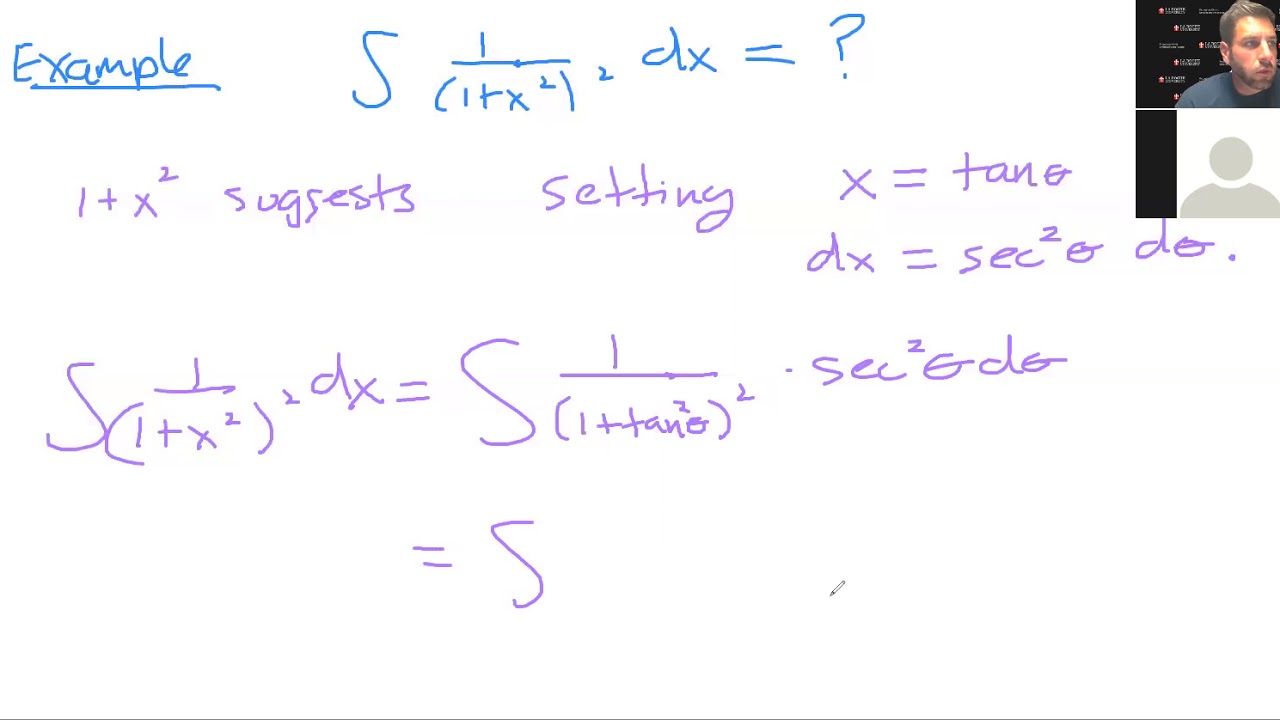 Example ∫ 1/(1+x²)² dx = ?
1+x² suggests setting x = tanθ
dx = sec²θ dθ.
∫ 1/(1+x²)² dx = ∫ 1/(1+tan²θ)² · sec²θ dθ
= ∫